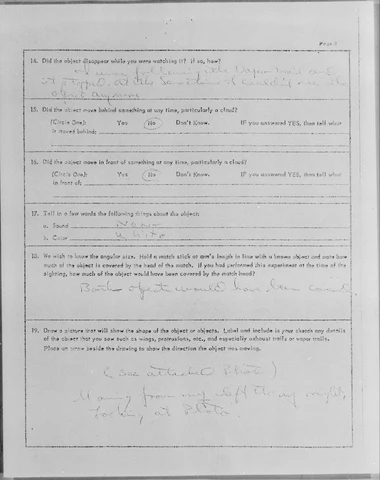 Page 3
14. Did the object disappear while you were watching it? If so, how?
following the vapor trail and
it stopped. at the
object anymore
15. Did the object move behind something at any time, particularly a cloud?
(Circle One): Yes No Don't Know. IF you answered YES, then tell what
it moved behind:
16. Did the object move in front of something at any time, particularly a cloud?
(Circle One): Yes No Don't Know. IF you answered YES, then tell what
in front of:
17. Tell in a few words the following things about the object:
a. Sound None
b. Color White
18. We wish to know the angular size. Hold a match stick at arm's length in line with a known object and note how
much of the object is covered by the head of the match. If you had performed this experiment at the time of the
sighting, how much of the object would have been covered by the match head?
Both objects would have been covered
19. Draw a picture that will show the shape of the object or objects. Label and include in your sketch any details
of the object that you saw such as wings, protrusions, etc., and especially exhaust trails or vapor trails.
Place an arrow beside the drawing to show the direction the object was moving.
(See attached Photo)
Moving from my left to my right,
looking at Photo